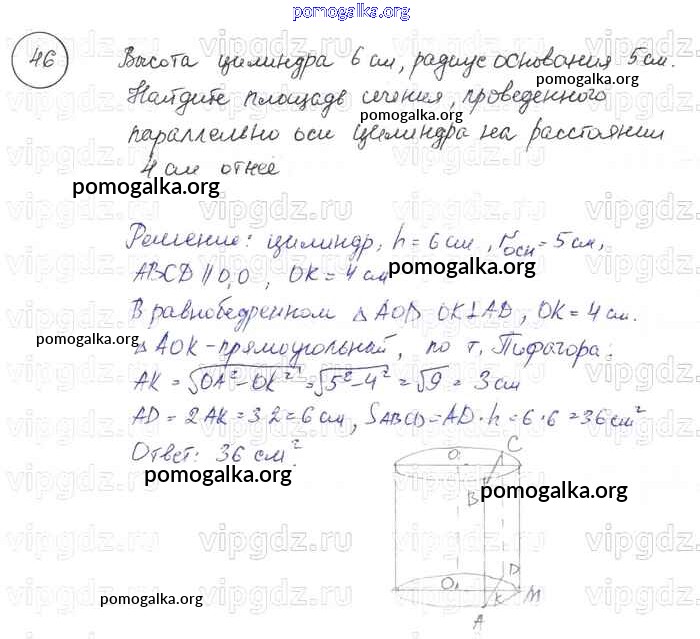 pomogalka.org
46
Высота цилиндра 6 см, радиус основания 5 см.
pomogalka.org
Найдите площадь сечения, проведенного
параллельно оси цилиндра на расстоянии
pomogalka.org
4 см от нее
pomogalka.org
Решение: цилиндр, h = 6 см, rосн = 5 см,
ABCD || O₁O, OK = 4 см
pomogalka.org
В равнобедренном △ AOD OK⊥AD, OK = 4 см.
pomogalka.org
△ AOK - прямоугольный, по т. Пифагора:
AK = √OA² - OK² = √5² - 4² = √9 = 3 см
AD = 2 AK = 3·2 = 6 см, SABCD = AD · h = 6 · 6 = 36 см²
Ответ: 36 см².
pomogalka.org
O
C
B
pomogalka.org
O₁
D
K
M
A
pomogalka.org
vipgdz.ru